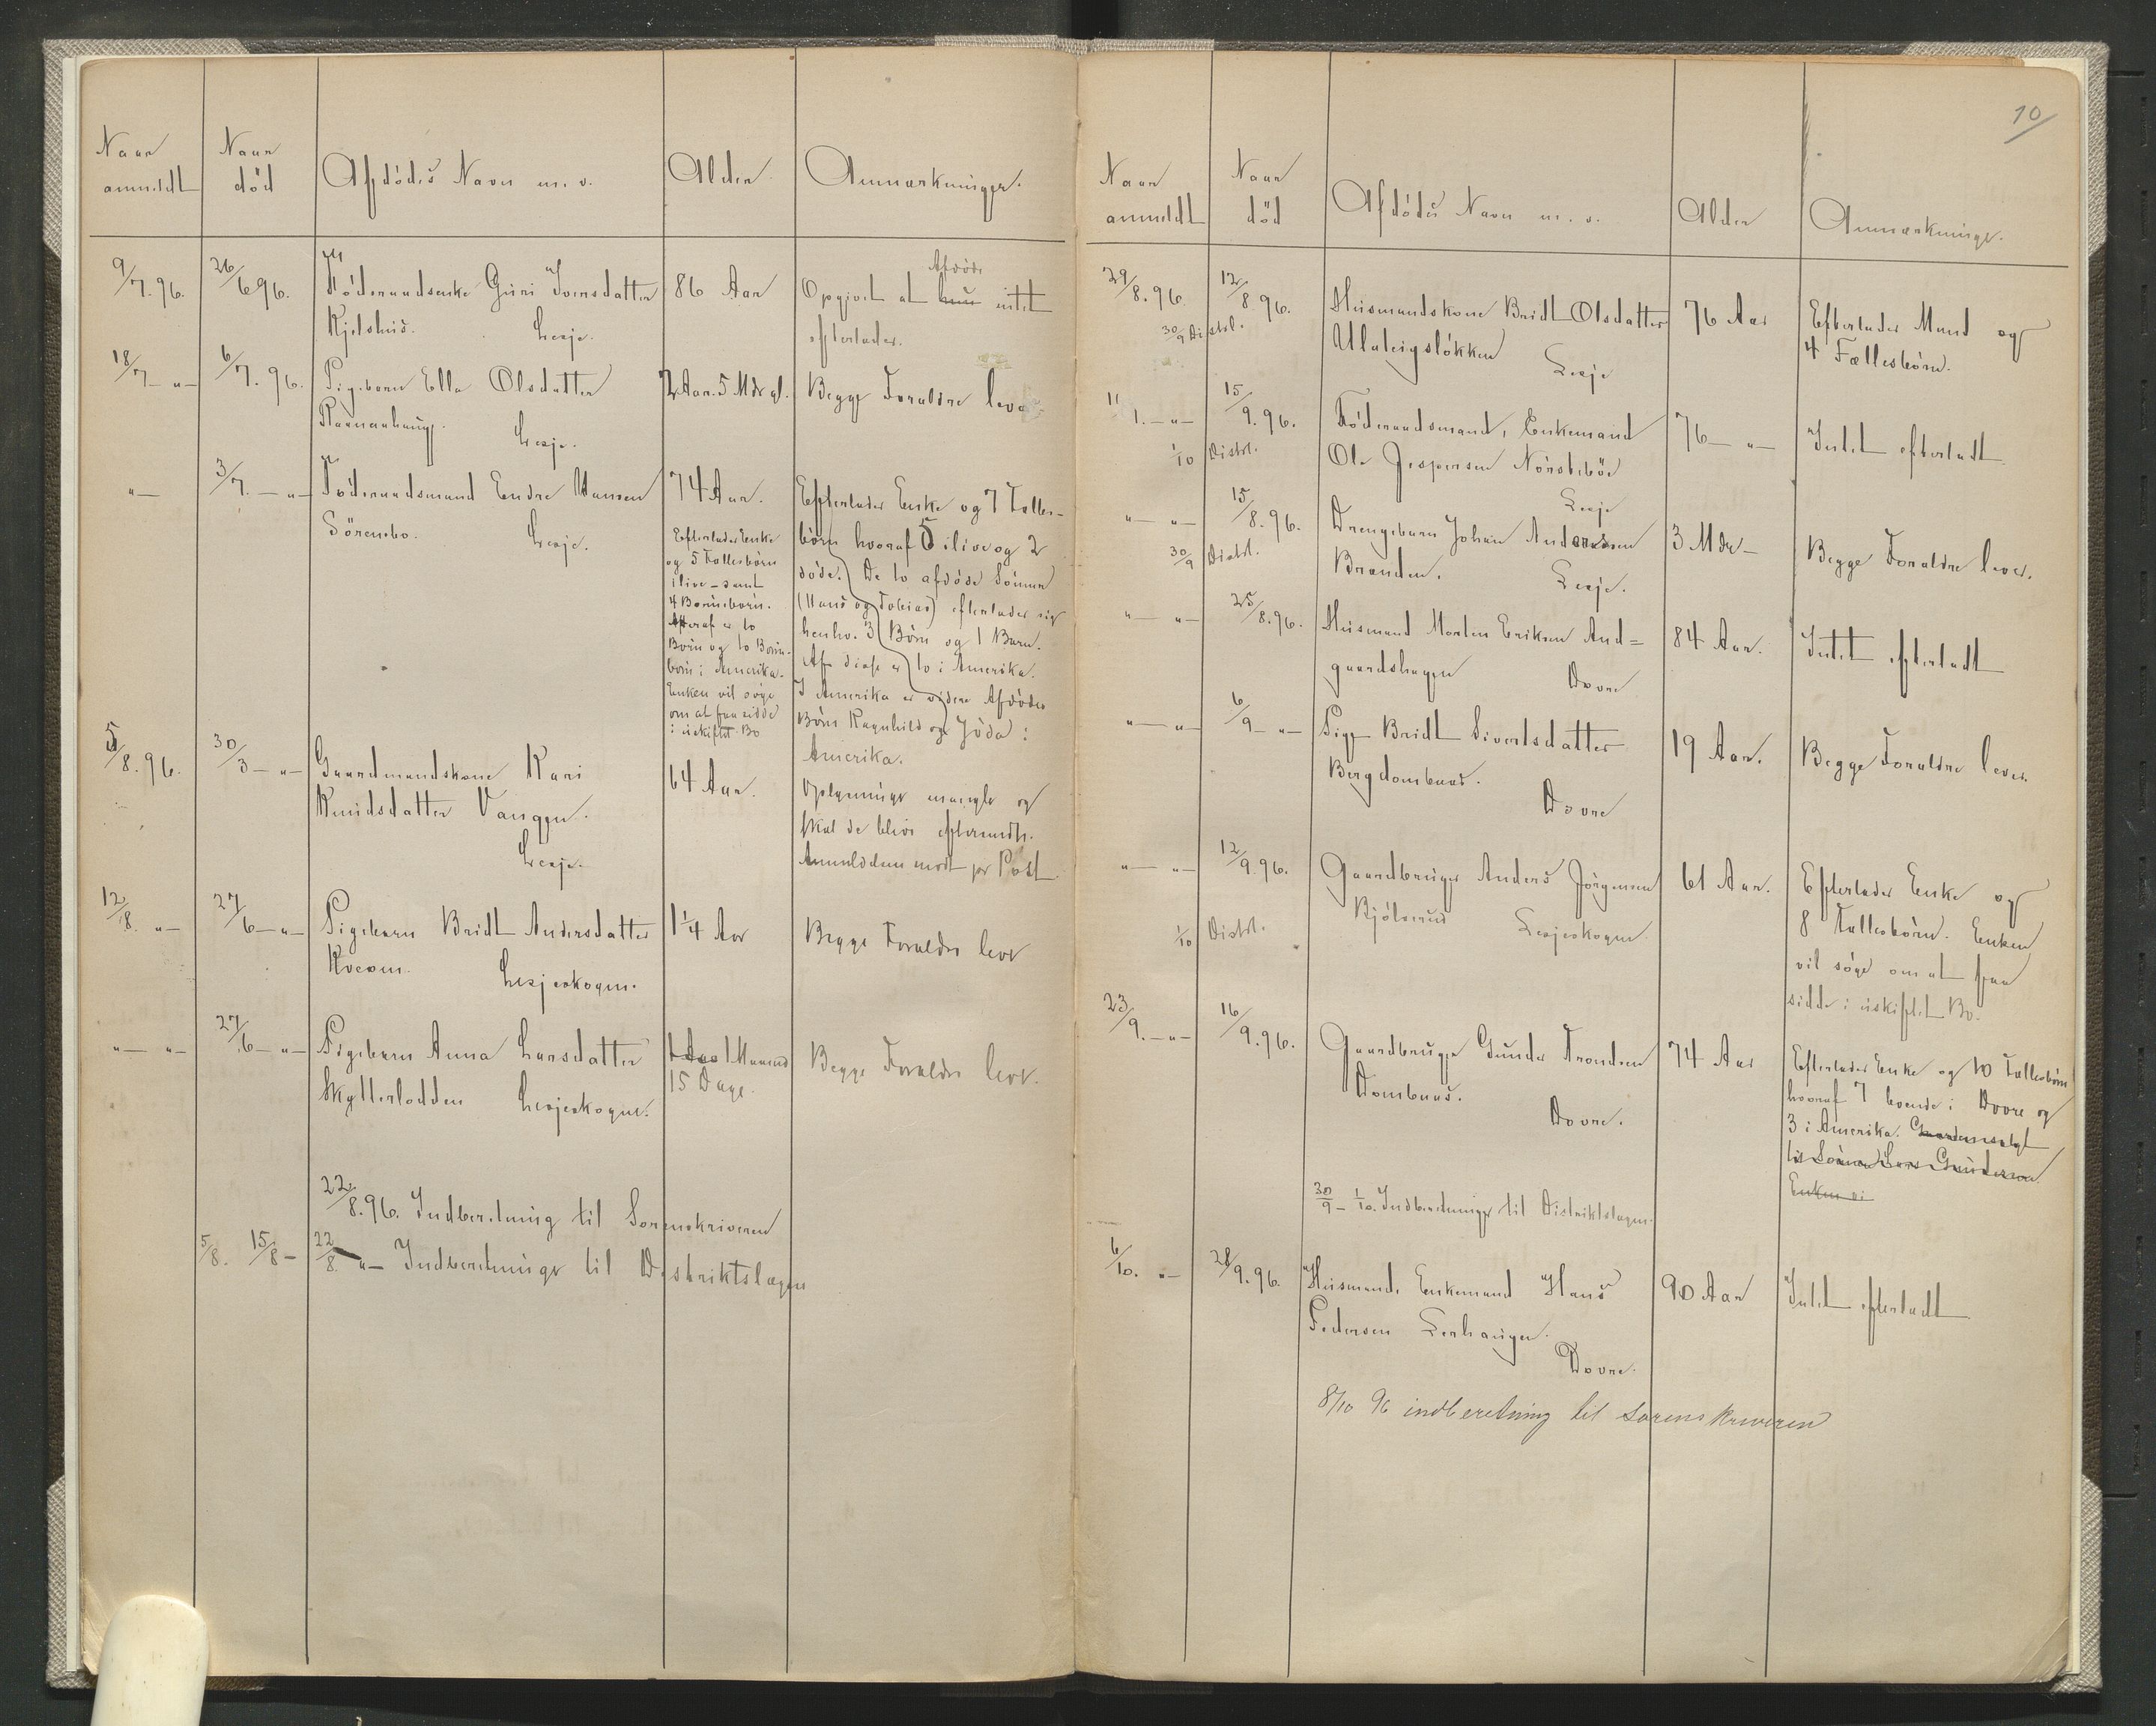 Naar anmeldt
Naar död
Afdödes Navn m. v.
Alder
Anmærkninger.
9/7.96. 26/6 96. Föderaadsenke Guri Iversdatter 86 Aar Opgivet at hun Afdöde intet
Kjelshus. Lesje. efterlader.
18/7 -"- 6/7.96. Pigebarn Ella Olsdatter 2 Aar. 5 Mdr gl. Begge Foraldre lever
Lesje.
"- 3/7.-"- Föderaadsmand Endre Hansen 74 Aar. Efterlader Enke og 7 Falles-
Sörembo. Lesje.
Efterlader Enke
og 5 Fallesbörn
i live - samt
4 Börnebörn.
Heraf er to
Börn og to Börne-
börn i Amerika.
Enken vil söge
om at faa sidde
i uskiftet Bo
börn hvoraf 5 ilive og 2
döde. De to afdöde Sönner
(Hans og Tobias) efterlader sig
henhv. 3 Börn og 1 Barn.
Af disse er to i Amerika.
I Amerika er videre Afdödes
Börn Ragnhild og Jöda:
Amerika.
5/8.96. 30/3 -"- Gaardmandskone Kari 64 Aar. Oplysninger mangle og
Knudsdatter Vangen. skal de blive eftersendt.
Lesje. Anmeldelsen modt pr Post
12/8. "- 27/6-"- Pigebarn Bridt Andersdatter 1 1/4 Aar Begge Foraldre lever
Kvesm. Lesjeskogen.
"- "- 27/6-"- Pigebarn Anna Larsdatter 1 Aar 1 Maaned Begge Foraldre lever.
Skytterlodden Lesjeskogen. 15 Dage.
22/8.96. Indberetning til Sorenskriveren
5/8. 15/8 - 22/8 "- Indberetninger til Distriktslægen
10
Naar anmeldt
Naar död
Afdödes Navn m. v.
Alder
Anmærkninger.
29/8.96. 12/8 96. Husmandskone Bridt Olsdatter 76 Aar Efterlader Mand og
30/9 Distrl. Ulateigslökken Lesje 4 Fællesbörn.
1.-"- 15/9.96. Föderaadsmand, Enkemand 76 -"- Intet efterladt
1/10 Distrl. Ole Jespersen Nörsteböe
Lesje
"- "- 15/8.96. Drengebarn Johan Andersen 3 Mdr - Begge Foraldre lever.
30/9 Distrl. Branden. Lesje.
"- "- 25/8.96. Husmand Morten Eriksen And= 84 Aar. Intet efterladt
gaardshagen Dovre
"- "- 6/9 -"- Pige Bridt Sivertsdatter 19 Aar. Begge Foraldre lever.
Bergdombaas. Dovre
"- "- 12/9.96. Gaardbruger Anders Jörgensen 61 Aar. Efterlader Enke og
1/10 Distrl. Kjölsrud Lesjeskogen. 8 Fallesbörn. Enken
vil söge om at faa
sidde i uskiftet Bo.
23/9.-"- 16/9.96. Gaardbruger Gunder Trondsen 74 Aar Efterlader Enke og 10 Fallesbörn
Dombaas. Dovre. hvoraf 7 boende i Dovre og
3 i Amerika. Gaarden solgt
til Sönnen Lars Gundersen
Enken vi
30/9 - 1/10. Indberetninger til Distriktslægen.
6/10. "- 28/9.96. Husmand. Enkemand Hans 90 Aar Intet efterladt
Pedersen Lerhaugen.
Dovre.
8/10 96 indberetning til sorenskriveren